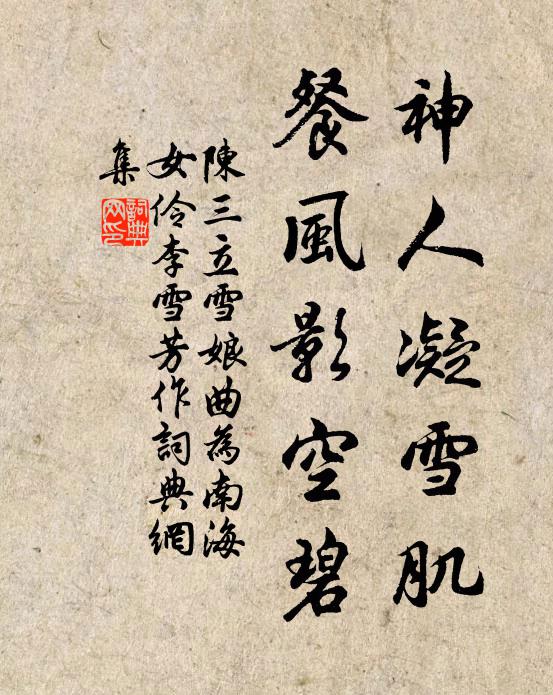 神人凝雪肌
餐風影空碧
陳三立雪娘曲為南海
女伶李雪芳作詞典網
集
詞典
网印